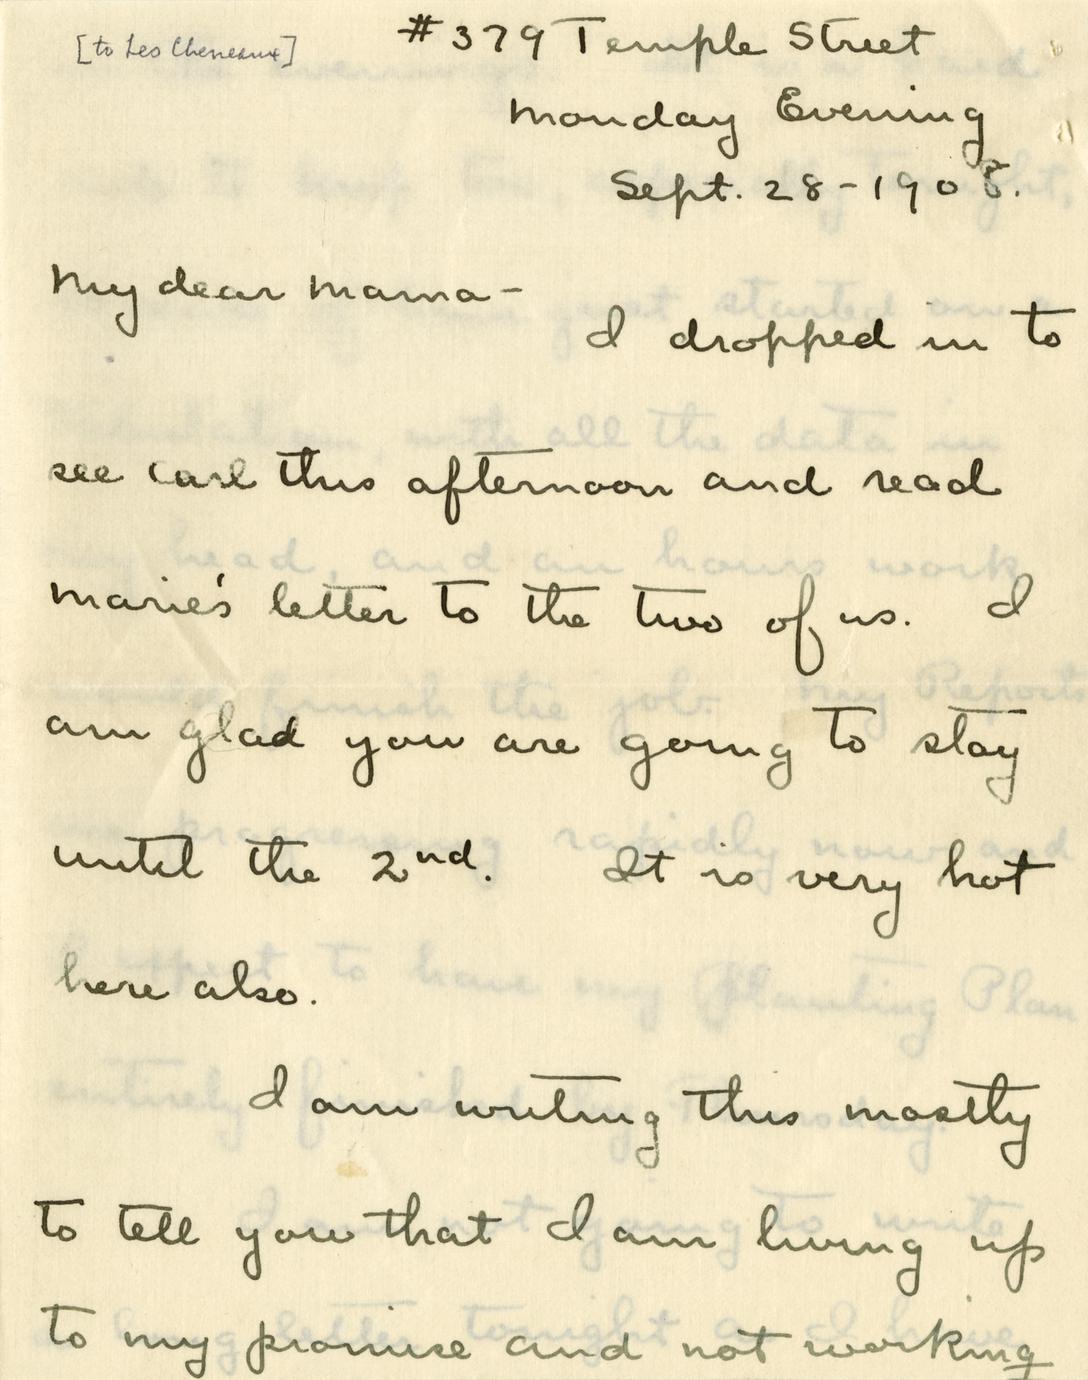 [to Les Cheneaux]
#379 Temple Street
Monday Evening
Sept. 28-1908.
My dear Mama-
I dropped in to
see Carl this afternoon and read
Marie's letter to the two of us. I
am glad you are going to stay
until the 2nd. It is very hot
here also.
I am writing this mostly
to tell you that I am living up
to my promise and not working